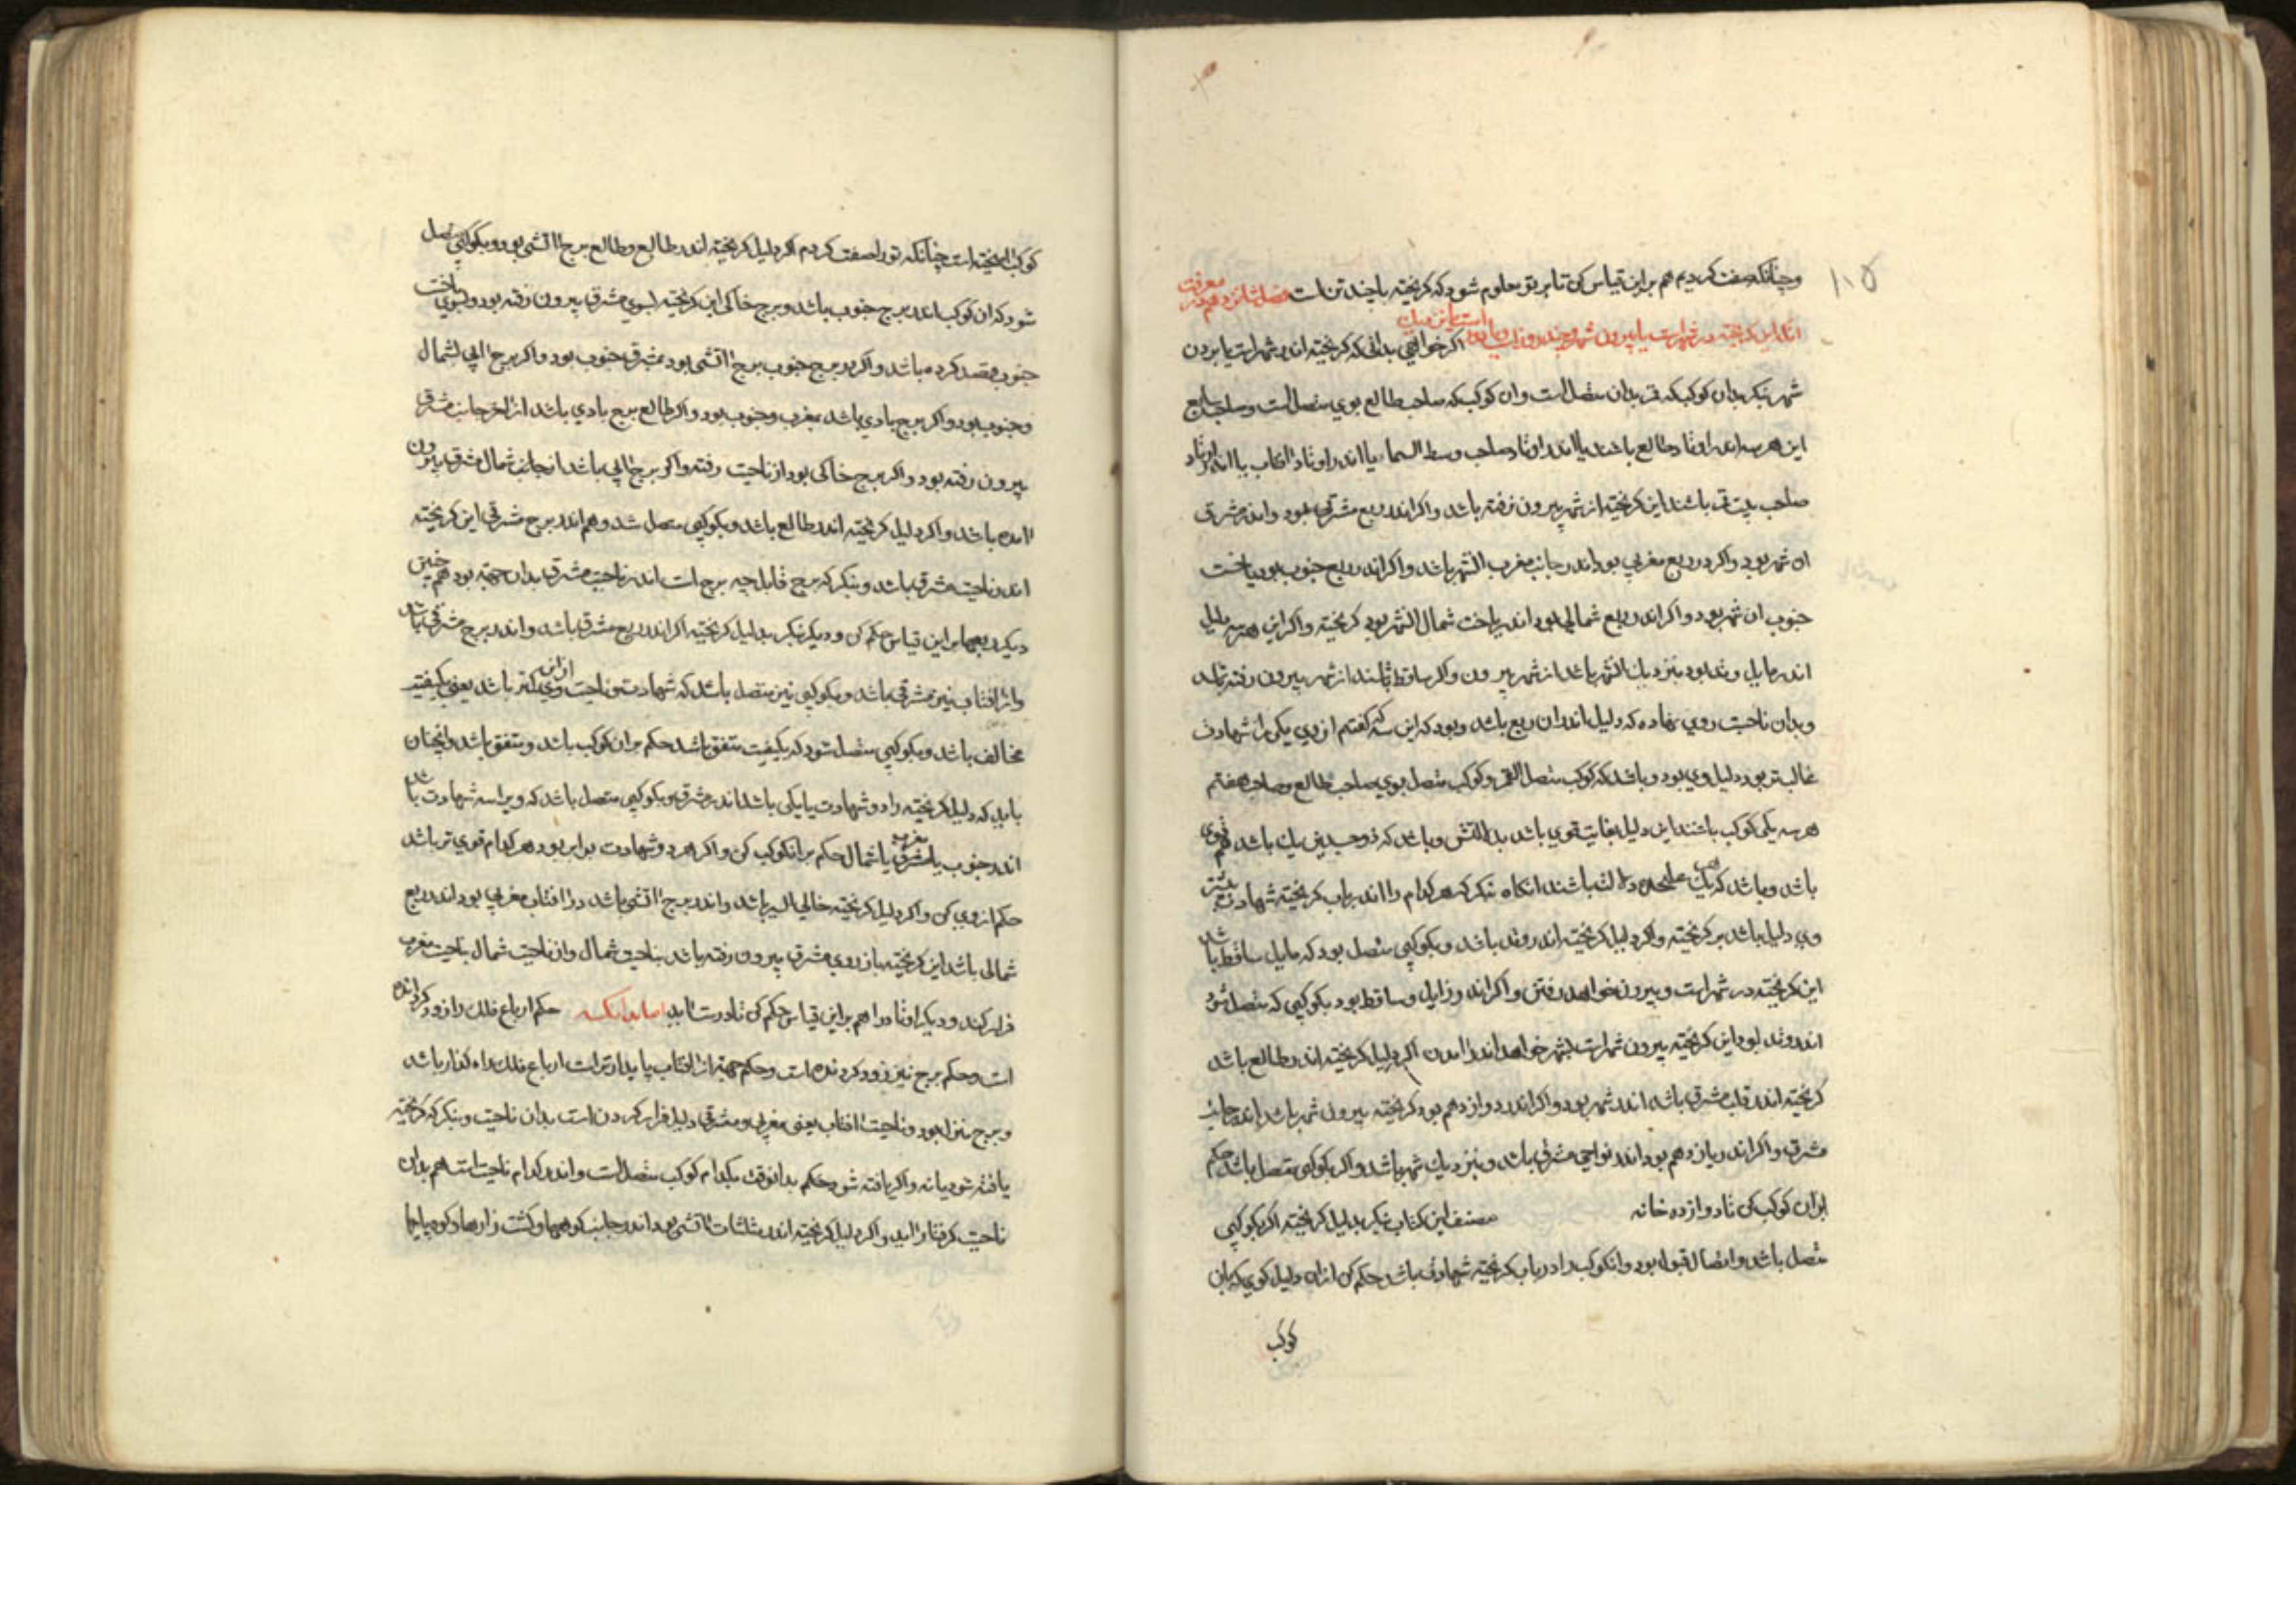 ۱۰۵
وچنانکه صفت کردیم هم براین قیاس کن تا بر تو معلوم شود که کریخته با چند تن است فصل شانزدهم در معرفت
انکه این کریخته در شهر است یا بیرون شهر و چند روز است
اکر خواهی بدانی که کریخته اندر شهر است یا برون
شهر بنکر بدان کوکب که قمر بدان متصل است وان کوکب که صاحب طالع بوی متصل است وصاحب سابع
این هر سه اندر اوتاد طالع باشند یا اندر اوتاد صاحب وسط السما یا اندر اوتاد افتاب یا اندر اوتاد
صاحب بیت باشند این کریخته از شهر بیرون نرفته باشد واکر اندر ربع مشرقی بود واندر مشرق
ان شهر بود واکر در ربع مغربی بود اندر جانب مغرب الشهر باشد واکر اندر ربع جنوب بود بناحیت
جنوب ان شهر بود واکر اندر ربع شمالی بود اندر ناحیت شمال الشهر بود کریخته واکر این هر سه دلیل
اندر مایل وتد بود نزدیک الشهر باشد از شهر بیرون واکر ساقط باشند از شهر بیرون رفته باشد
وبدان ناحیت روی نهاده که دلیل اندر ان ربع باشد وبود که این سه که کفتم از وی یکی را شهادت
غالبتر بود دلیل وی بود وباشد که کوکب متصل القمر وکوکب متصل بوی صاحب طالع وصاحب هفتم
هر سه یکی کوکب باشند این دلیل بغایت قوی باشد بدانش وباشد که ذو جسدین یک باشد قوی
باشد وباشد که یک علیحده دلالت باشند انکاه بنکر که هر کدام را اندر باب کریخته شهادت بیشتر
وی دلیل باشد بر کریخته واکر دلیل کریخته اندر وتد باشد وبکوکبی متصل بود که مایل ساقط باشد
این کریخته در شهر است وبیرون خواهد رفتن واکر اندر زایل وساقط بود بکوکبی که متصل شود
اندر وتد بود این کریخته بیرون شهر است بشهر خواهد اندر امدن اکر دلیل کریخته اندر طالع باشد
کریخته اندر قلب مشرق باشد اندر شهر بود واکر اندر دوازدهم بود کریخته بیرون شهر باشد اندر جانب
مشرق واکر اندر یازدهم بود اندر نواحی مشرق باشد ونزدیک شهر باشد واکر بکوکبی متصل باشد حکم
بران کوکب کن تا دوازده خانه مصنف این کتاب بنکر بدلیل کریخته اکر بکوکبی
متصل باشد واتصال قبول بود وانکوکب را در باب کریخته شهادت باشد حکم کن از ان دلیل کوی که بان
کوکب
کوکب امیخته است چنانکه تو را صفت کردم اکر دلیل کریخته اندر طالع وطالع برج اتشی بود وبکوکبی متصل
شود که ان کوکب اندر برج جنوب باشد وبرج خاکی این کریخته بسوی مشرق بیرون رفته بود وبسوی ناحیت
جنوب قصد کرده باشد واکر در برج جنوب برج اتشی بود بمشرق جنوب بود واکر برج ابی بشمال
وجنوب بود واکر برج بادی باشد بمغرب وجنوب بود واکر طالع برج بادی باشد از اخر جانب مشرق
بیرون رفته بود واکر برج خاکی بود از ناحیت رفته واکر برج ابی باشد از جانب شمال مشرق بیرون
امده باشد واکر دلیل کریخته اندر طالع باشد وبکوکبی متصل شد وهم اندر برج مشرقی این کریخته
اندر ناحیت مشرق باشد وبنکر که برج قابل چه برج است اندر ناحیت مشرق بدان جهة بود همچنین
دیکر ربعها براین قیاس حکم کن ودیکر بنکر بدلیل کریخته اکر اندر ربع مشرق باشد واندر برج مشرقی باشد
واز افتاب نیز مشرقی باشد وبکوکبی نیز متصل باشد که شهادت وناحیت وی از این کمتر باشد یعنی بکیفیت
مخالف باشد وبکوکبی متصل شود که بکیفیت متفق باشد حکم بران کوکب باشد ومتفق باشد وانچنان
باید که دلیل کریخته را دو شهادت یا یکی باشد اندر مشرق وبکوکبی متصل باشد که ویرا سه شهادت باشد
اندر جنوب یا مشرق مغرب یا شمال حکم برانکوکب کن واکر هر دو شهادت برابر بود هر کدام قوی تر باشد
حکم از وی کن واکر دلیل کریخته خالی السیر باشد واندر برج اتشی باشد واز افتاب مغربی بود اندر ربع
شمالی باشد این کریخته باز روی مشرق بیرون رفته باشد بناحیت شمال واز ناحیت شمال بناحیت مغرب
فرار کند ودیکر اوتاد را هم براین قیاس حکم کن تا درست اید اما بدانکه حکم ارباع فلک را زود کردنده
است وحکم برج نیز زود کردنده است وحکم جهة از افتاب پایدارتر است ارباع فلک راه کذار باشد
وبرج منزل بود وناحیت افتاب یعنی مغربی ومشرقی دلیل قرار کردن است بدان ناحیت وبنکر که کریخته
یافته شود یا نه واکر یافته شود حکم بدانوقت بکدام کوکب متصل است واندر کدام ناحیت است هم بدان
ناحیت کرفتار اید واکر دلیل کریخته اندر مثلثات اتشی بود اندر جانب کوهها وکشت زارها